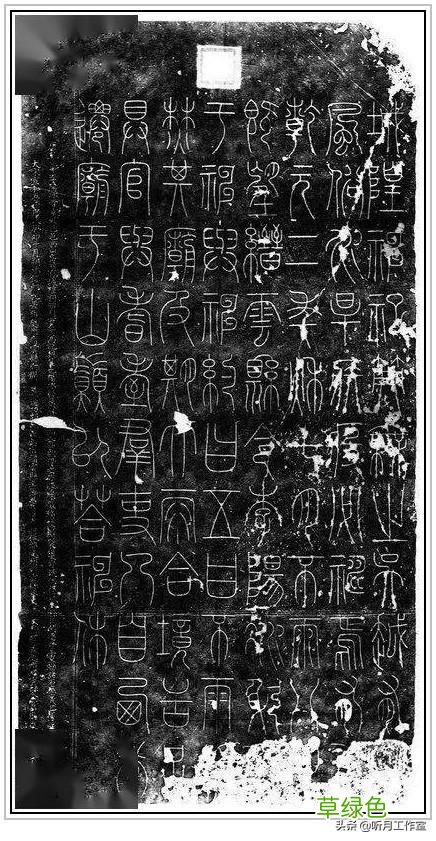 城隍神祀典無之吳越有
風俗水旱疾疫必禱焉有
乾元二年秋七月不雨八
既望縉雲縣令李陽冰躬
于神與神約曰五日不雨
焚其廟及期大雨合境告
具官與耆耋群吏乃自西
遷廟于山巔以答神休
草绿色
头条 @听月工作室